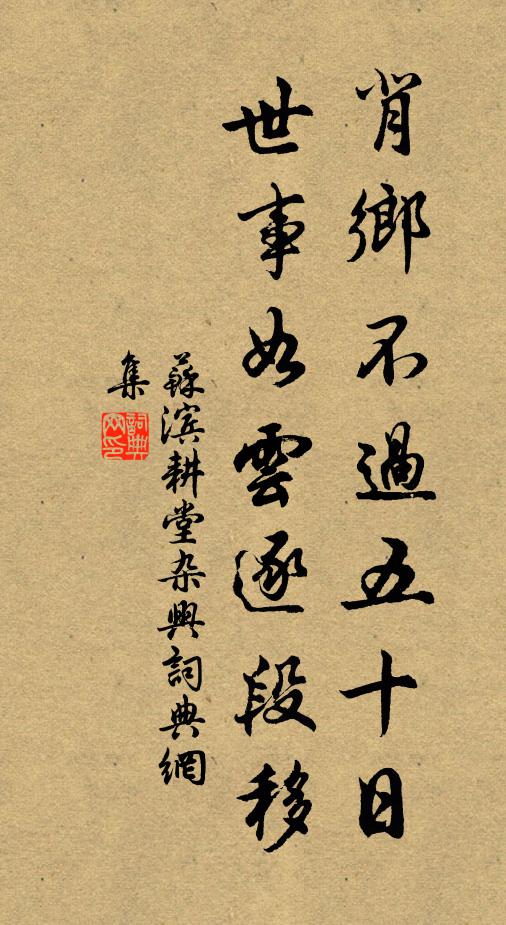 肯鄉不過五十日
世事如雲逐段移
蘇濱耕堂杂興詞典網
集
詞典
網印